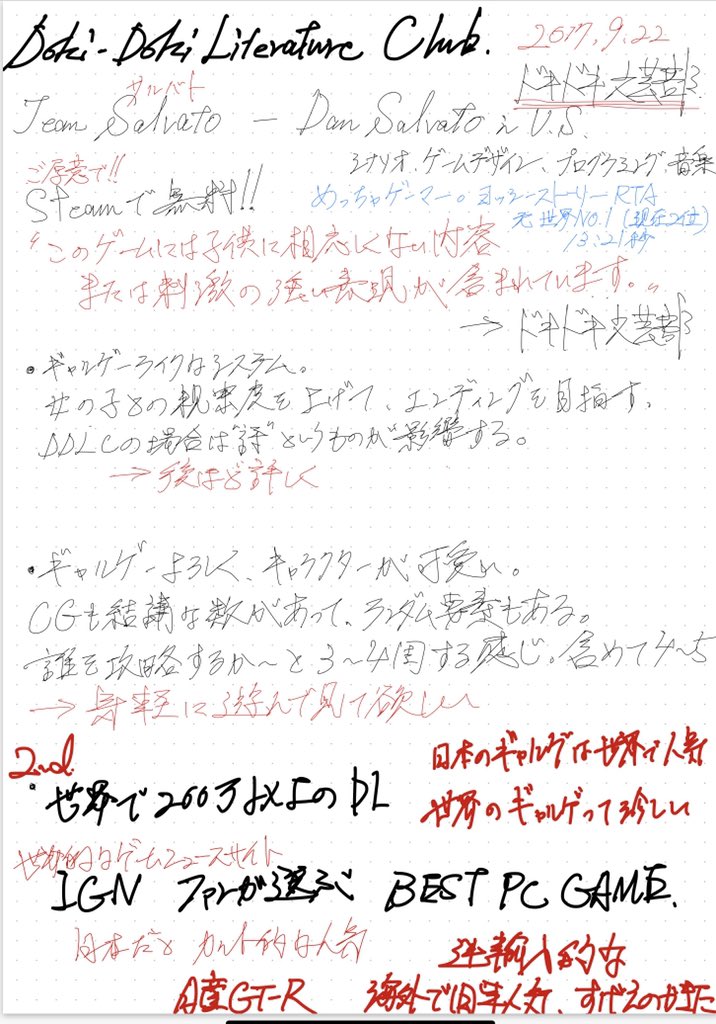 Doki-Doki Literature Club.
2017,9,22
ドキドキ文芸部
サルバト
Team Salvato — Dan Salvato in U.S.
シナリオ、ゲームデザイン、プログラミング、音楽
ご厚意で!!
Steamで無料!!
めっちゃゲーマー。ヨッシーストーリーRTA
元世界NO.1 (現在2位)
13:21秒
"このゲームには子供に相応しくない内容
または刺激の強い表現が含まれています。"
→ ドキドキ文芸部
・ギャルゲーライクなシステム。
女の子との親密度を上げて、エンディングを目指す、
DDLCの場合は"詩"というものが影響する。
→ 後ほど詳しく
・ギャルゲーよろしく、キャラクターが可愛い。
CGも結構な数があって、ランダム要素もある。
誰を攻略するか〜と3〜4周する感じ。含めて4〜5
→ 気軽に遊んで見て欲しい
2nd
日本のギャルゲは世界で人気
・世界で200万以上のDL
世界のギャルゲって珍しい
世界的なゲームニュースサイト
IGN ファンが選ぶ BEST PC GAME.
日本だと カルト的な人気
逆輸入的な
日産GT-R
海外で日本人気、すげえのがきた